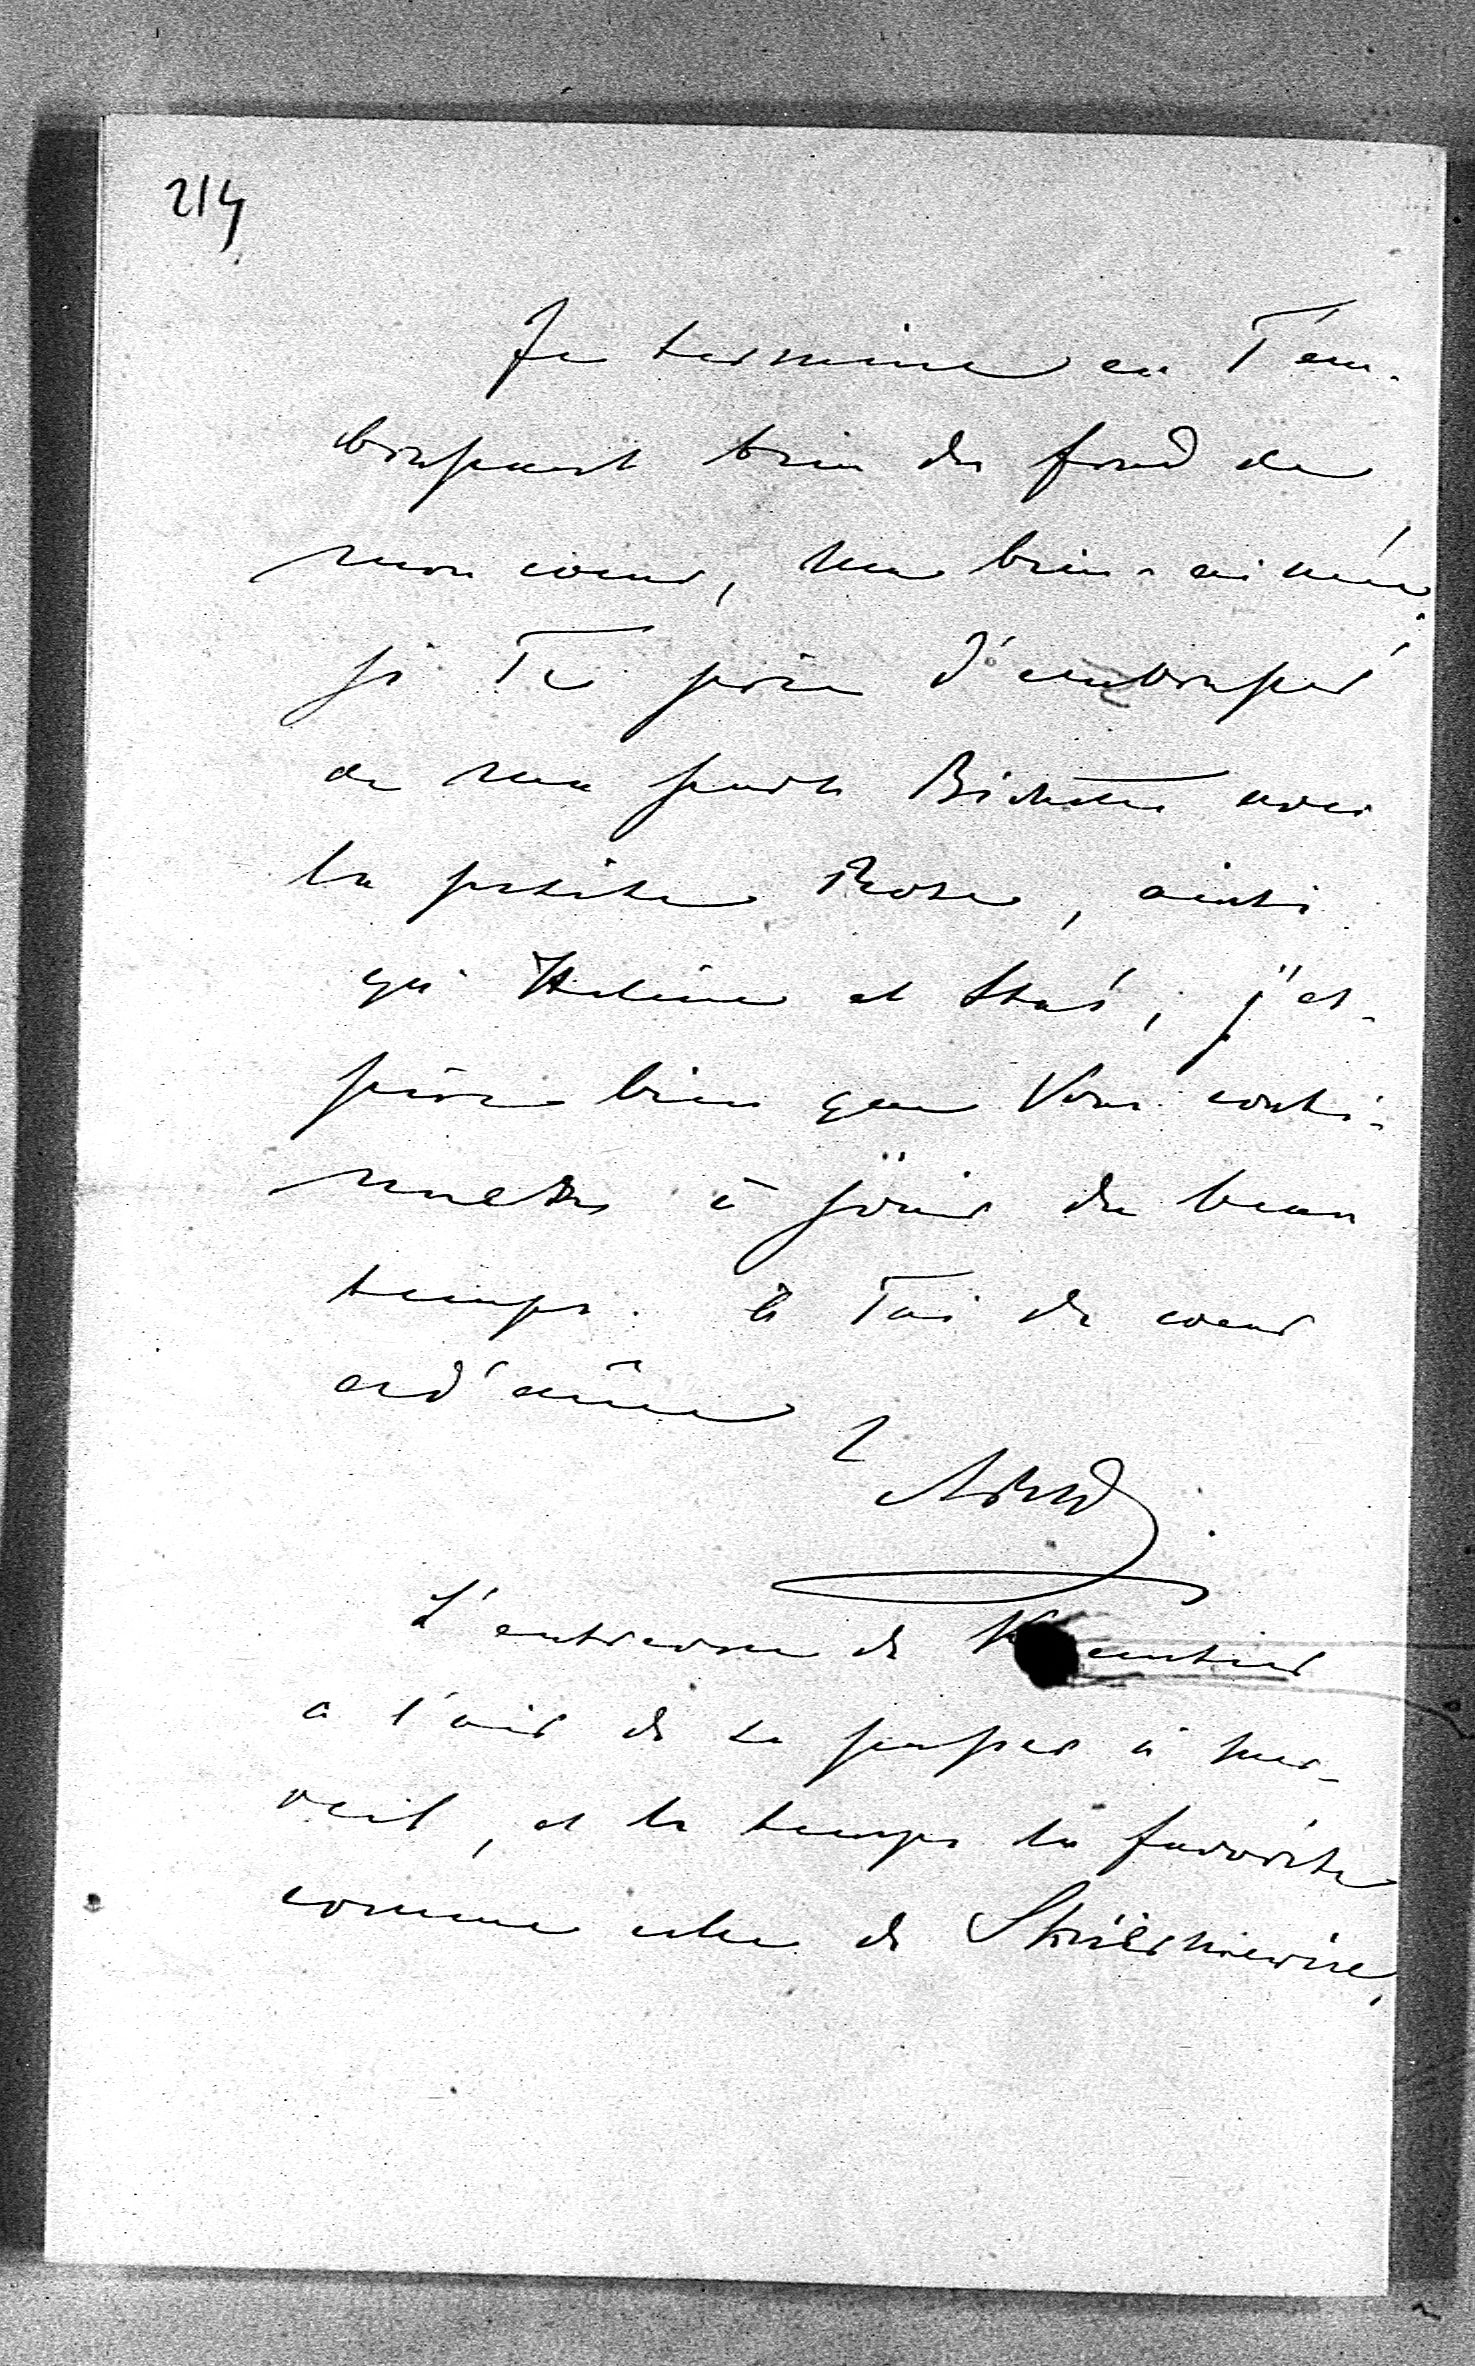 214
Je termine en T'em-
brassant bien du fond de
mon coeur, ma bien-aimée,
je Te prie d'embrasser
de ma part Bichette avec
la petite Rose, ainsi
qu'Helène et Staś, j'es-
père bien que Vous conti-
nuez à jouir du beau
temps. à Toi de coeur
et d'âme
L'entrevue de
a l'air de se passer à mer-
veil, et le temps la favorise
comme celle de Skierniewice,